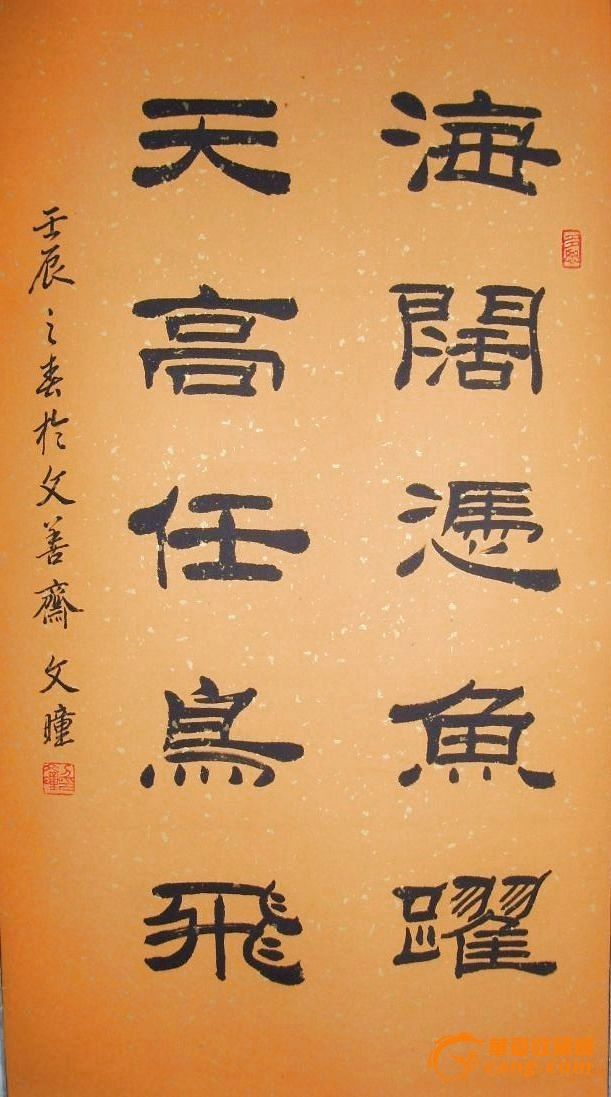 海闊憑魚躍
天高任鳥飛
壬辰之春於文善齋 文瞳